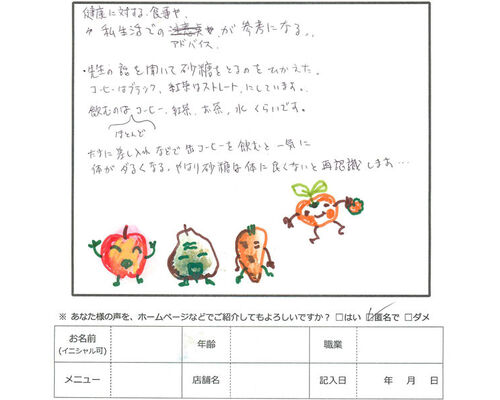 健康に対する食事や、
〃 私生活での が参考になる。
アドバイス
・先生の話を聞いて砂糖をとるのをひかえた。
コーヒーはブラック、紅茶はストレート、にしています。
飲むのはコーヒー、紅茶、お茶、水くらいです。
ほとんど
たまに差し入れなどで缶コーヒーを飲むと一気に
体がダルくなる。やはり砂糖は体に良くないと再認識します…
※ あなた様の声を、ホームページなどでご紹介してもよろしいですか？ □はい ☑匿名で □ダメ
お名前 年齢 職業
(イニシャル可)
メニュー 店舗名 記入日 年 月 日